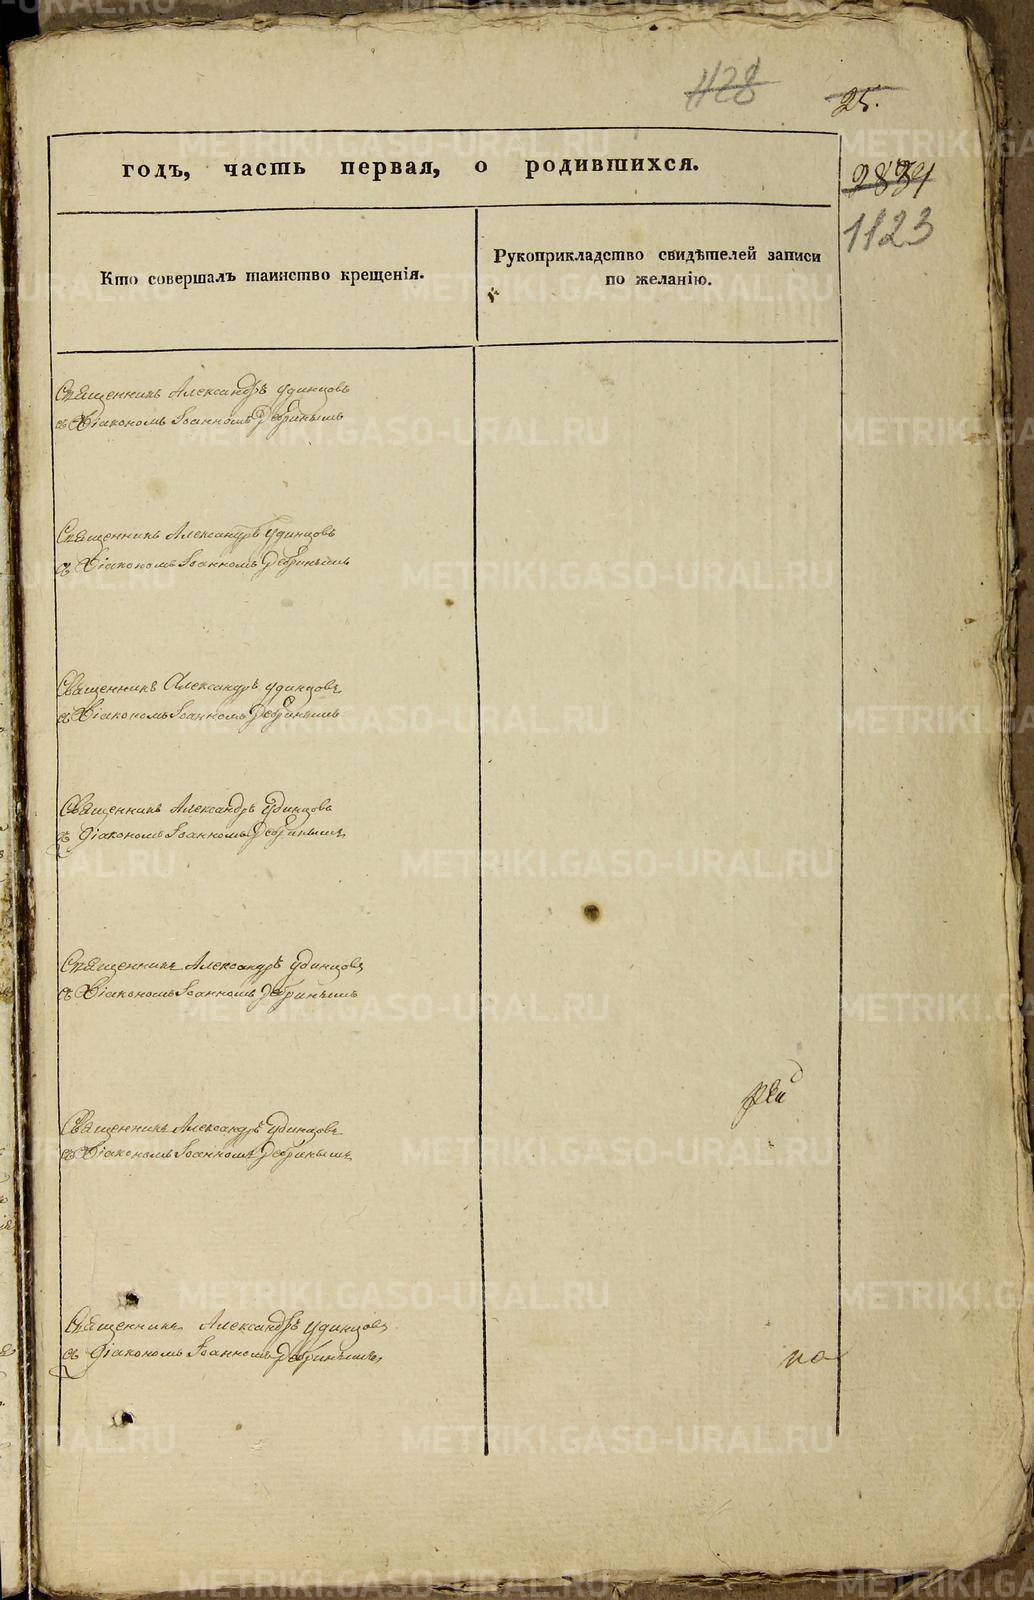 1128
25.
годъ, часть первая, о родившихся.
1123
Кто совершалъ таинство крещенія.
Рукоприкладство свидѣтелей записи
по желанію.
Священникъ Александръ Удинцовъ
съ Діакономъ Іоанномъ
Священникъ Александръ Удинцовъ
съ Діакономъ Іоанномъ
Священникъ Александръ Удинцовъ
съ Діакономъ Іоанномъ
Священникъ Александръ Удинцовъ
съ Діакономъ Іоанномъ
Священникъ Александръ Удинцовъ
съ Діакономъ Іоанномъ
Священникъ Александръ Удинцовъ
съ Діакономъ Іоанномъ
Священникъ Александръ Удинцовъ
съ Діакономъ Іоанномъ
по
METRIKI.GASO-URAL.RU